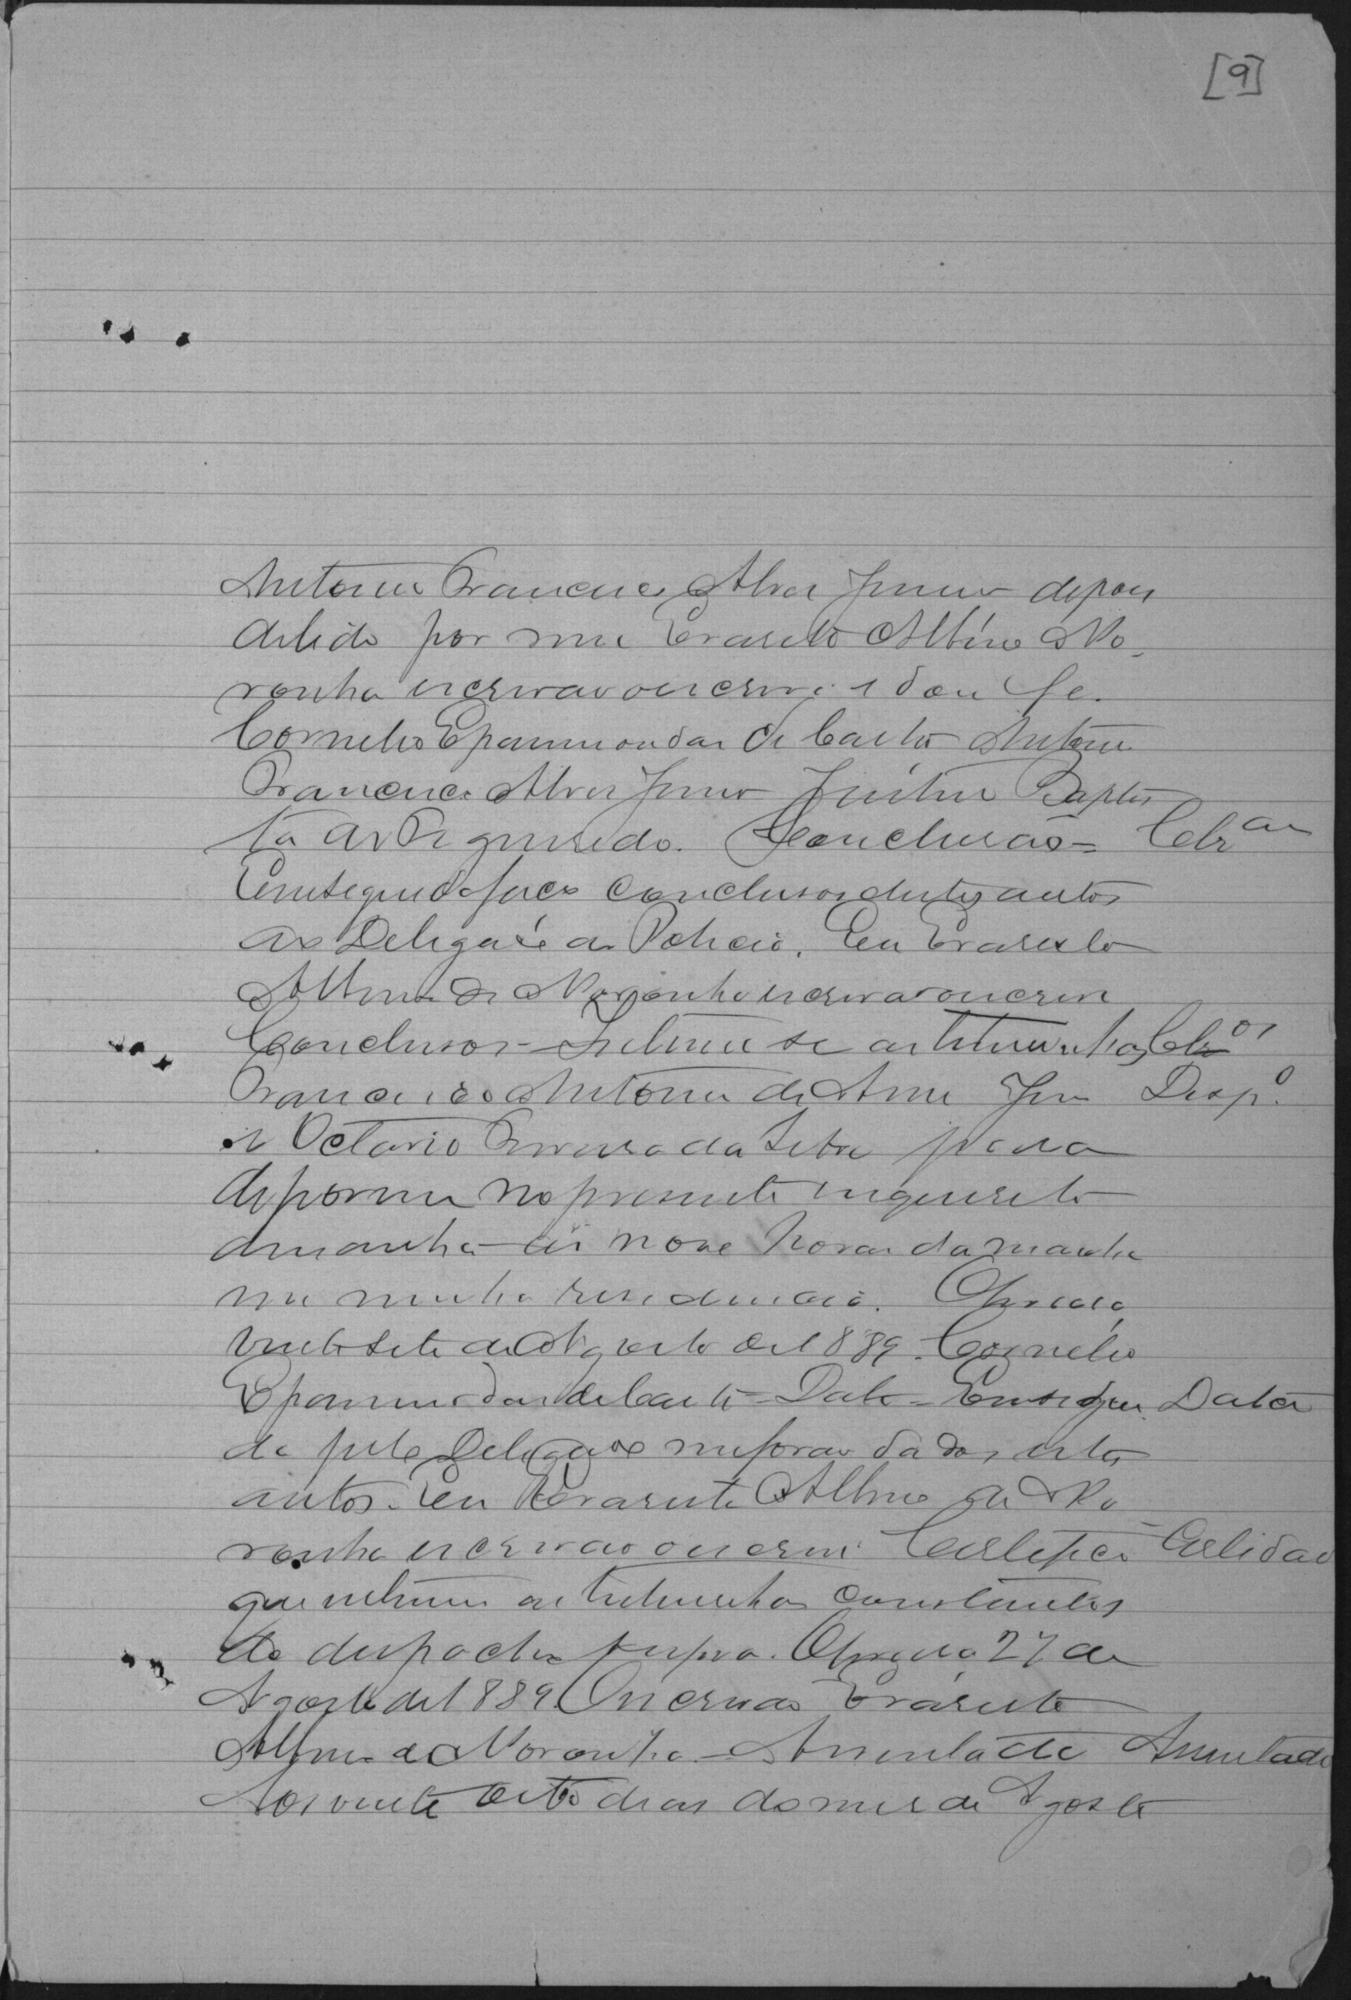 [9]
Antonio Francisco Alves Junior depois
de lido por mim Evaristo Albino No-
ronha escrivão o escrevi e dou fé.
Cornelio Epaminondas de Castro Antonio
Francisco Alves Junior Justino Baptis
ta de Figueiredo. Conclusão=
Em seguida faço conclusos estes autos
ao Delegado de Policia. Eu Evaristo
Albino de Noronha escrivão o escrevi
Conclusos - Intime se as testemunhas
Francisco Antonio de
e Octavio Ferreira da Silva para
deporem no presente inquerito
amanhã ás nove horas da manhã
na minha residencia.
vinte sete de Agosto de 1889. Cornelio
Epaminondas de Castro - Data - Em segui Data
da pelo Delegado me forão dados estes
autos. Eu Evaristo Albino de No
ronha escrivão o escrevi Certifico Certidão
que intimei as testemunhas constantes
do despacho supra. 27 de
Agosto de 1889. O escrivão Evaristo
Albino de Noronha - Assentada Assentada
Aos vinte oito dias do mez de Agosto